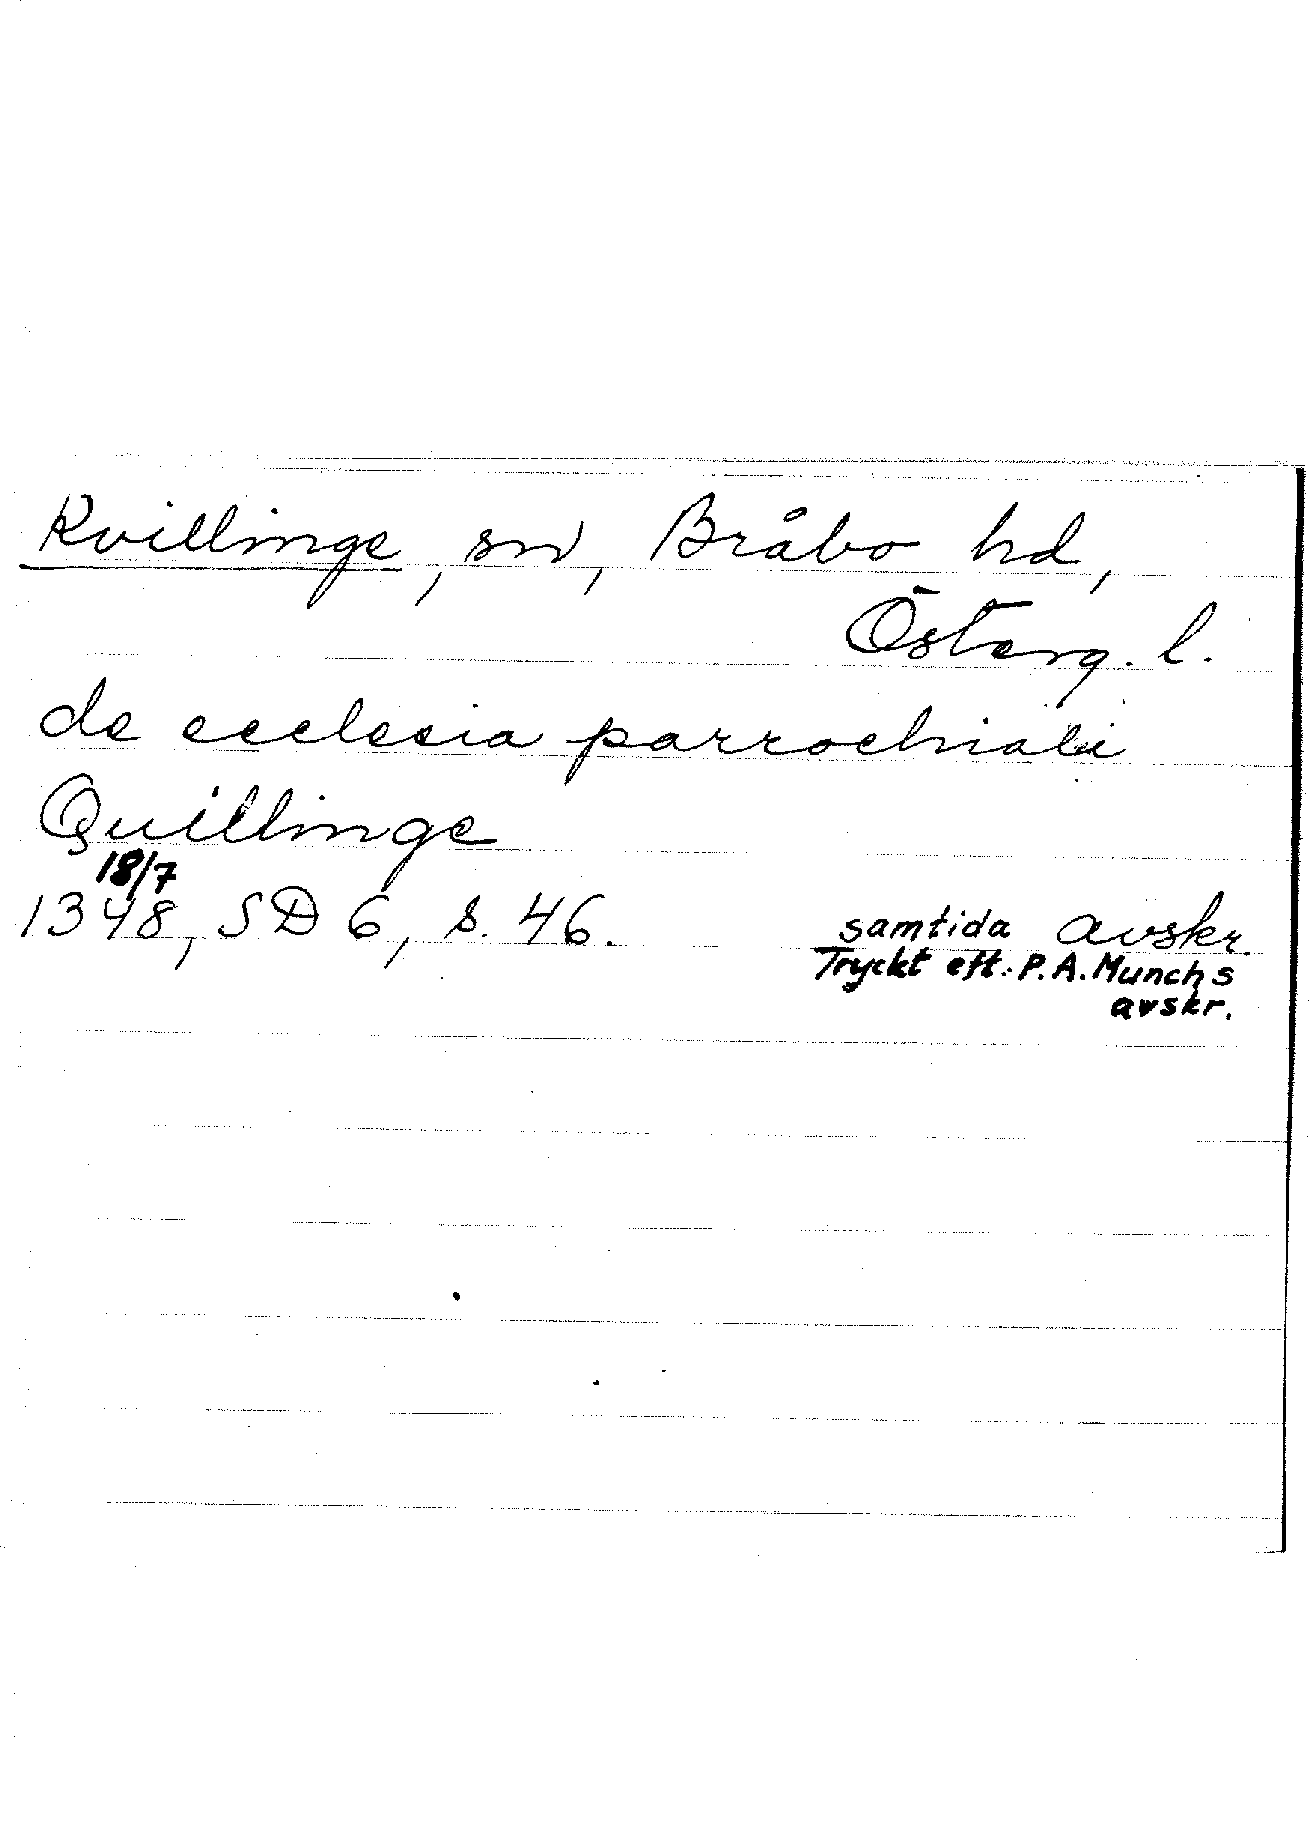 Kvillinge, sn, Bråbo hd,
Österg. l.
de ecclesia parrochiali
Quillinge
18/7
1348, SD 6, s. 46. samtida avskr.
Tryckt eft. P. A. Munchs
avskr.